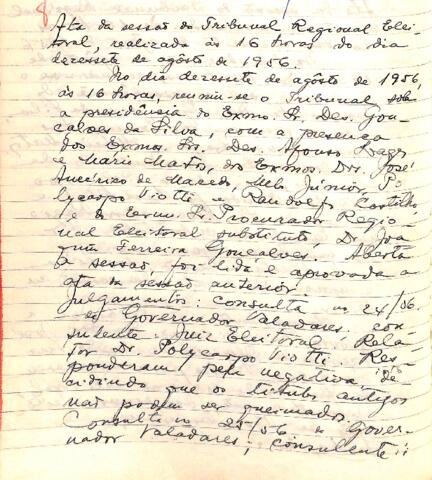 8
Ata da sessão do Tribunal Regional Elei-
toral, realizada às 16 horas do dia
dezessete de agosto de 1956.
No dia dezessete de agôsto de 1956,
às 16 horas, reuniu-se o Tribunal sob
a presidência do Exmo. Sr. Des. Gon-
çalves da Silva, com a presença
dos Exmos. Srs. Des. Afonso Lages
e Mario Matos, dos Exmos. Drs. José
Américo de Macedo, Melo Júnior, Po-
lycarpo Viotti e Randolfo
e do Exmo. Sr. Procurador Regio-
nal Eleitoral substituto, Dr. Joa-
quim Ferreira Gonçalves. Aberta
a sessão, foi lida e aprovada a
ata da sessão anterior.
Julgamentos: consulta no 24/56.
Governador Valadares. con-
sulente: Juiz Eleitoral. Rela-
tor Dr. Polycarpo Viotti. Res-
ponderam pela negativa, de-
cidindo que os titulos antigos
não podem ser queimados.
Consulta no 25/56 Gover-
nador Valadares; consulente: